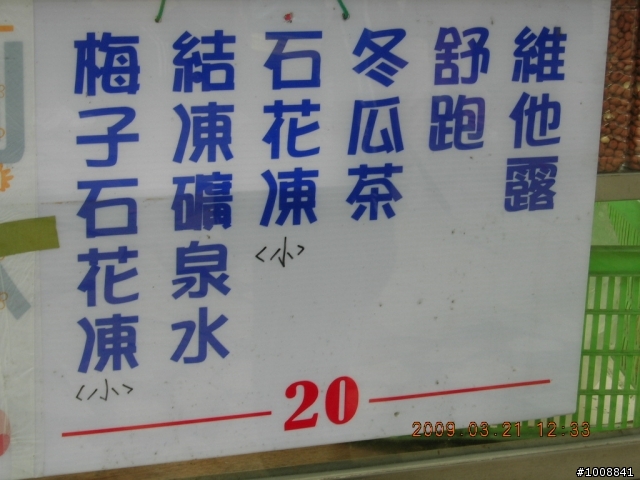 維他露
舒跑
冬瓜茶
石花凍
<小>
結凍礦泉水
梅子石花凍
<小>
20
2009.03.21 12:33
#1008841